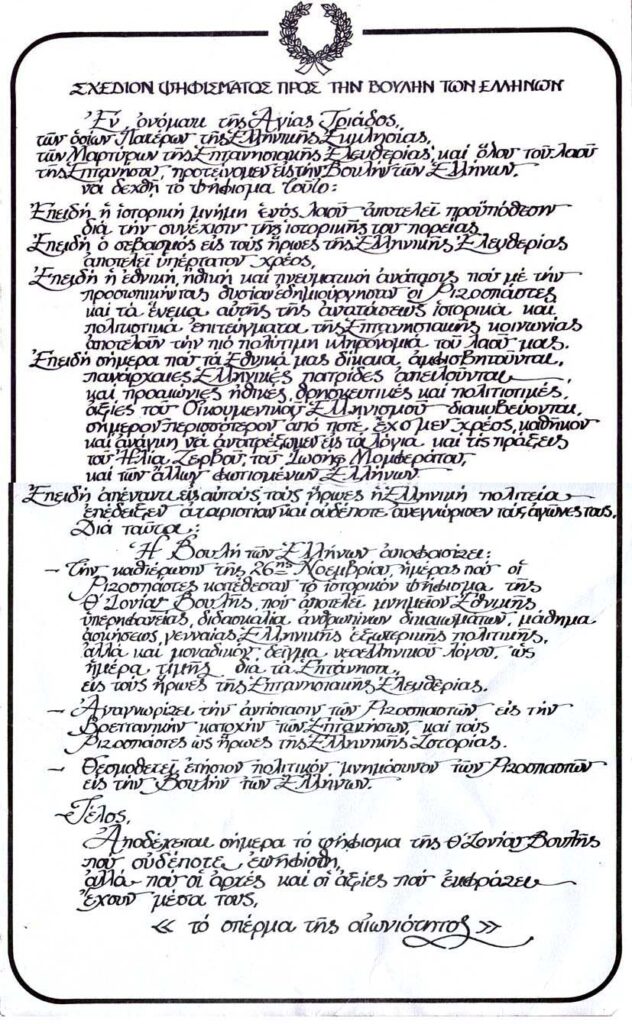 ΣΧΕΔΙΟΝ ΨΗΦΙΣΜΑΤΟΣ ΠΡΟΣ ΤΗΝ ΒΟΥΛΗΝ ΤΩΝ ΕΛΛΗΝΩΝ
Ἐν ὀνόματι τῆς Ἁγίας Τριάδος,
τῶν ὁσίων Πατέρων τῆς Ἑλληνικῆς Ἐκκλησίας,
τῶν Μαρτύρων τῆς Ἑπτανησιακῆς Ἐλευθερίας, καί ὅλου τοῦ λαοῦ
τῆς Ἑπτανήσου, προτείνομεν εἰς τήν Βουλήν τῶν Ἑλλήνων,
νά δεχθῆ τό ψήφισμα τοῦτο:
Ἐπειδή ἡ ἱστορική μνήμη ἑνός λαοῦ ἀποτελεῖ προϋπόθεσιν
διά τήν συνέχισιν τῆς ἱστορικῆς του πορείας,
Ἐπειδή ὁ σεβασμός εἰς τούς ἥρωες τῆς Ἑλληνικῆς Ἐλευθερίας
ἀποτελεῖ ὑπέρτατον χρέος,
Ἐπειδή ἡ ἐθνική, ἠθική καί πνευματική ἀνάτασις πού μέ τήν
προσωπικήν τας θυσίαν ἐδημιούργησαν οἱ Ριζοσπάστες
καί τά ἕνεκα αὐτῆς τῆς ἀνατάσεως ἱστορικά καί
πολιτιστικά ἐπιτεύγματα τῆς Ἑπτανησιακῆς κοινωνίας
ἀποτελοῦν τήν πιό πολύτιμη κληρονομία τοῦ λαοῦ μας,
Ἐπειδή σήμερα πού τά Ἐθνικά μας δίκαια ἀμφισβητοῦνται,
πανάρχαιες Ἑλληνικές πατρίδες ἀπειλοῦνται,
καί προαιώνιες ἠθικές, θρησκευτικές καί πολιτιστικές,
ἀξίες τοῦ Οἰκουμενικοῦ Ἑλληνισμοῦ διακυβεύονται,
σήμερον περισσότερον ἀπό ποτέ, ἔχομεν χρέος, καθῆκον
καί ἀνάγκη νά ἀνατρέξωμεν εἰς τά λόγια καί τίς πράξεις
τοῦ Ἠλία Ζερβοῦ, τοῦ Ἰωσήφ Μομφεράτου,
καί τῶν ἄλλων φωτισμένων Ἑλλήνων.
Ἐπειδή ἀπέναντι εἰς αὐτούς, τούς ἥρωες ἡ Ἑλληνική πολιτεία
ἐπέδειξεν ἀχαριστίαν καί οὐδέποτε ἀνεγνώρισεν τούς ἀγῶνες τους,
Διά ταῦτα:
Ἡ Βουλή τῶν Ἑλλήνων ἀποφασίζει:
– Τήν καθιέρωσιν τῆς 26ης Νοεμβρίου, ἡμέρας πού οἱ
Ριζοσπάστες κατέθεσαν τό ἱστορικόν ψήφισμα τῆς
Θ' Ἰονίας Βουλῆς, πού ἀποτελεῖ μνημεῖον Ἐθνικῆς
ὑπερηφανείας, διδασκαλία ἀνθρωπίνων δικαιωμάτων, μάθημα
ἀσκήσεως, γενναίας, Ἑλληνικῆς ἐξωτερικῆς πολιτικῆς,
ἀλλά καί μοναδικόν, δεῖγμα νεοελληνικοῦ λόγου, ὡς
ἡμέρα τιμῆς διά τά Ἑπτάνησα,
εἰς τούς ἥρωες τῆς Ἑπτανησιακῆς Ἐλευθερίας.
– Ἀναγνωρίζει τήν ἀντίστασιν τῶν Ριζοσπαστῶν εἰς τήν
Βρεττανικήν κατοχήν τῶν Ἑπτανήσων, καί τούς
Ριζοσπάστες ὡς ἥρωες τῆς Ἑλληνικῆς Ἱστορίας.
– Θεσμοθετεῖ, ἐτήσιον πολιτικόν, μνημόσυνον τῶν Ριζοσπαστῶν
εἰς τήν Βουλήν τῶν Ἑλλήνων.
– Τέλος,
Ἀποδέχεται σήμερα τό ψήφισμα τῆς Θ' Ἰονίας Βουλῆς
πού οὐδέποτε, ἐψηφίσθη,
ἀλλά πού οἱ ἀρχές καί οἱ ἀξίες πού ἐκφράζει
ἔχουν μέσα τους,
« τό σπέρμα τῆς αἰωνιότητος »